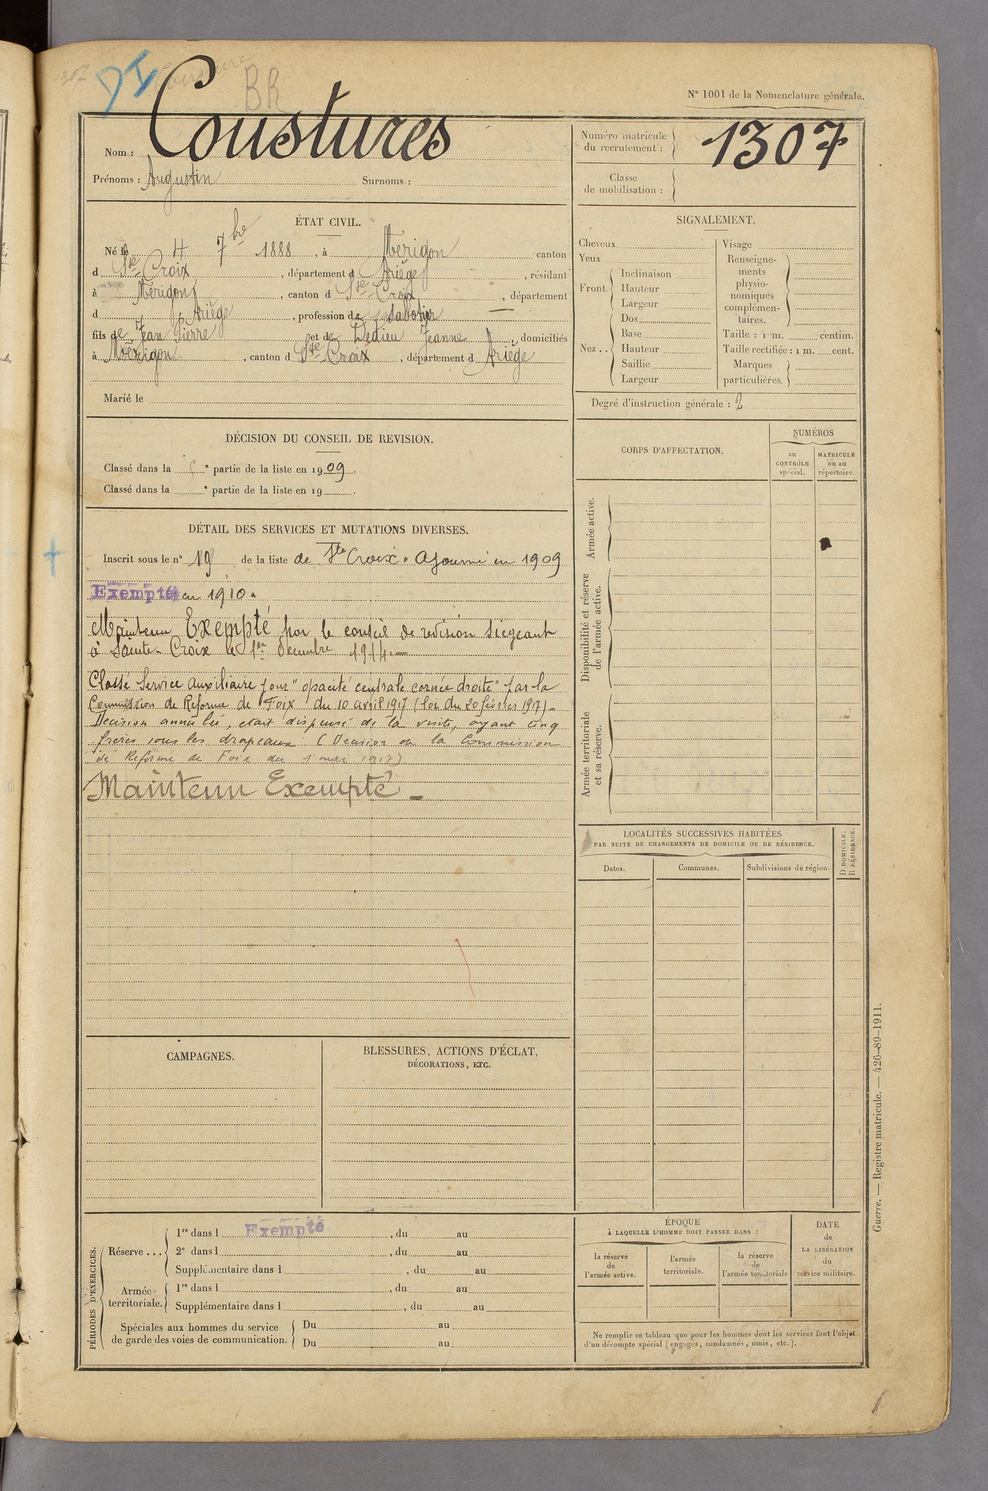 DI
BR
N° 1001 de la Nomenclature générale.
Nom : Coustures
Prénoms : Augustin Surnoms :
Numéro matricule du recrutement : 1307
Classe de mobilisation :
ÉTAT CIVIL.
Né le 4 7bre 1888, à Mérigon canton
d Ste Croix, département d Ariège, résidant
à Mérigon, canton d Ste Croix, département
d Ariège, profession de Sabotier
fils de Jean Pierre et de Dedieu Jeanne domiciliés
à Mérigon, canton d Ste Croix, département d Ariège
Marié le
SIGNALEMENT.
Cheveux
Yeux
Front
Inclinaison
Hauteur
Largeur
Nez ..
Dos
Base
Hauteur
Saillie
Largeur
Visage
Renseigne-
ments
physio-
nomiques
complémen-
taires.
Taille : 1 m. centim.
Taille rectifiée : 1 m. cent.
Marques
particulières.
Degré d'instruction générale : 2
DÉCISION DU CONSEIL DE REVISION.
Classé dans la ° partie de la liste en 1909.
Classé dans la ° partie de la liste en 19 .
DÉTAIL DES SERVICES ET MUTATIONS DIVERSES.
Inscrit sous le n° 19 de la liste de Ste Croix. Ajourné en 1909
Exempté en 1910.
Maintenu Exempté par le conseil de révision siégeant
à Sainte-Croix le 1er Décembre 1914.—
Classé Service Auxiliaire pour "opacité centrale cornée droite" par la
Commission de Réforme de Foix du 10 avril 1917 (Loi du 20 février 1917)—
Décision annulée, était dispensé de la visite, ayant cinq
frères sous les drapeaux (Décision de la Commission
de Réforme de Foix du 1 mai 1917)
Maintenu Exempté —
CORPS D'AFFECTATION.
NUMÉROS
au
CONTRÔLE
spécial.
MATRICULE
ou au
répertoire.
Armée active.
Disponibilité et réserve
de l'armée active.
Armée territoriale
et sa réserve.
LOCALITÉS SUCCESSIVES HABITÉES
PAR SUITE DE CHANGEMENTS DE DOMICILE OU DE RÉSIDENCE.
Dates.
Communes.
Subdivisions de région.
D DOMICILE.
R RÉSIDENCE.
CAMPAGNES.
BLESSURES, ACTIONS D'ÉCLAT,
DÉCORATIONS, ETC.
PÉRIODES D'EXERCICES.
Réserve ...
1re dans l Exempté, du au
2e dans l , du au
Supplémentaire dans l , du au
Armée
territoriale.
1re dans l , du au
Supplémentaire dans l , du au
Spéciales aux hommes du service
de garde des voies de communication.
Du au
Du au
ÉPOQUE
À LAQUELLE L'HOMME DOIT PASSER DANS :
la réserve
de
l'armée active.
l'armée
territoriale.
la réserve
de
l'armée territoriale
DATE
de
LA LIBÉRATION
du
service militaire.
Ne remplir ce tableau que pour les hommes dont les services font l'objet
d'un décompte spécial (engagés, condamnés, omis, etc.).
Guerre. — Registre matricule. — 426-89-1911.